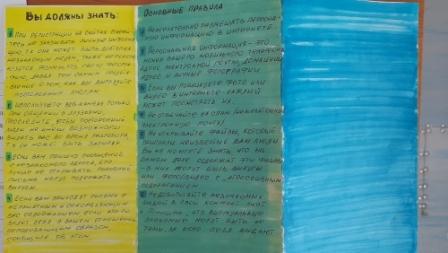 Вы должны знать:
При регистрации на сайтах
личную
может быть доступна
незнакомым людям. Также
Используете веб-камеру только
при общении с друзьями.
Проследите, чтобы посторонние
люди не имели возможности
видеть вас во время разговора,
т.к. он может быть записан.
Если вам пришло сообщение
с незнакомого адреса, его
лучше не открывать. Подобные
письма могут содержать
вирусы.
Если вам приходят письма с
неприятным и оскорбляющим
вас содержанием, если кто-то
ведет себя в вашем отношении
неподобающим образом,
сообщите об этом.
Основные правила
Нежелательно размещать персональную
информацию в интернете
Персональная информация - это
номер вашего мобильного телефона,
адрес электронной почты, домашний
адрес и личные фотографии
Если вы публикуете фото или
видео в интернете - каждый
может посмотреть их.
Не отвечайте на спам (нежелательную
электронную почту)
Не открывайте файлы, которые
прислали неизвестные вам люди.
Вы не можете знать, что на
самом деле содержат эти файлы
- в них могут быть вирусы
или фото/видео с „агрессивным"
содержанием
Не добавляйте незнакомых
людей в свой контакт лист
Помните, что виртуальные
знакомые могут быть не
теми, за кого себя выдают